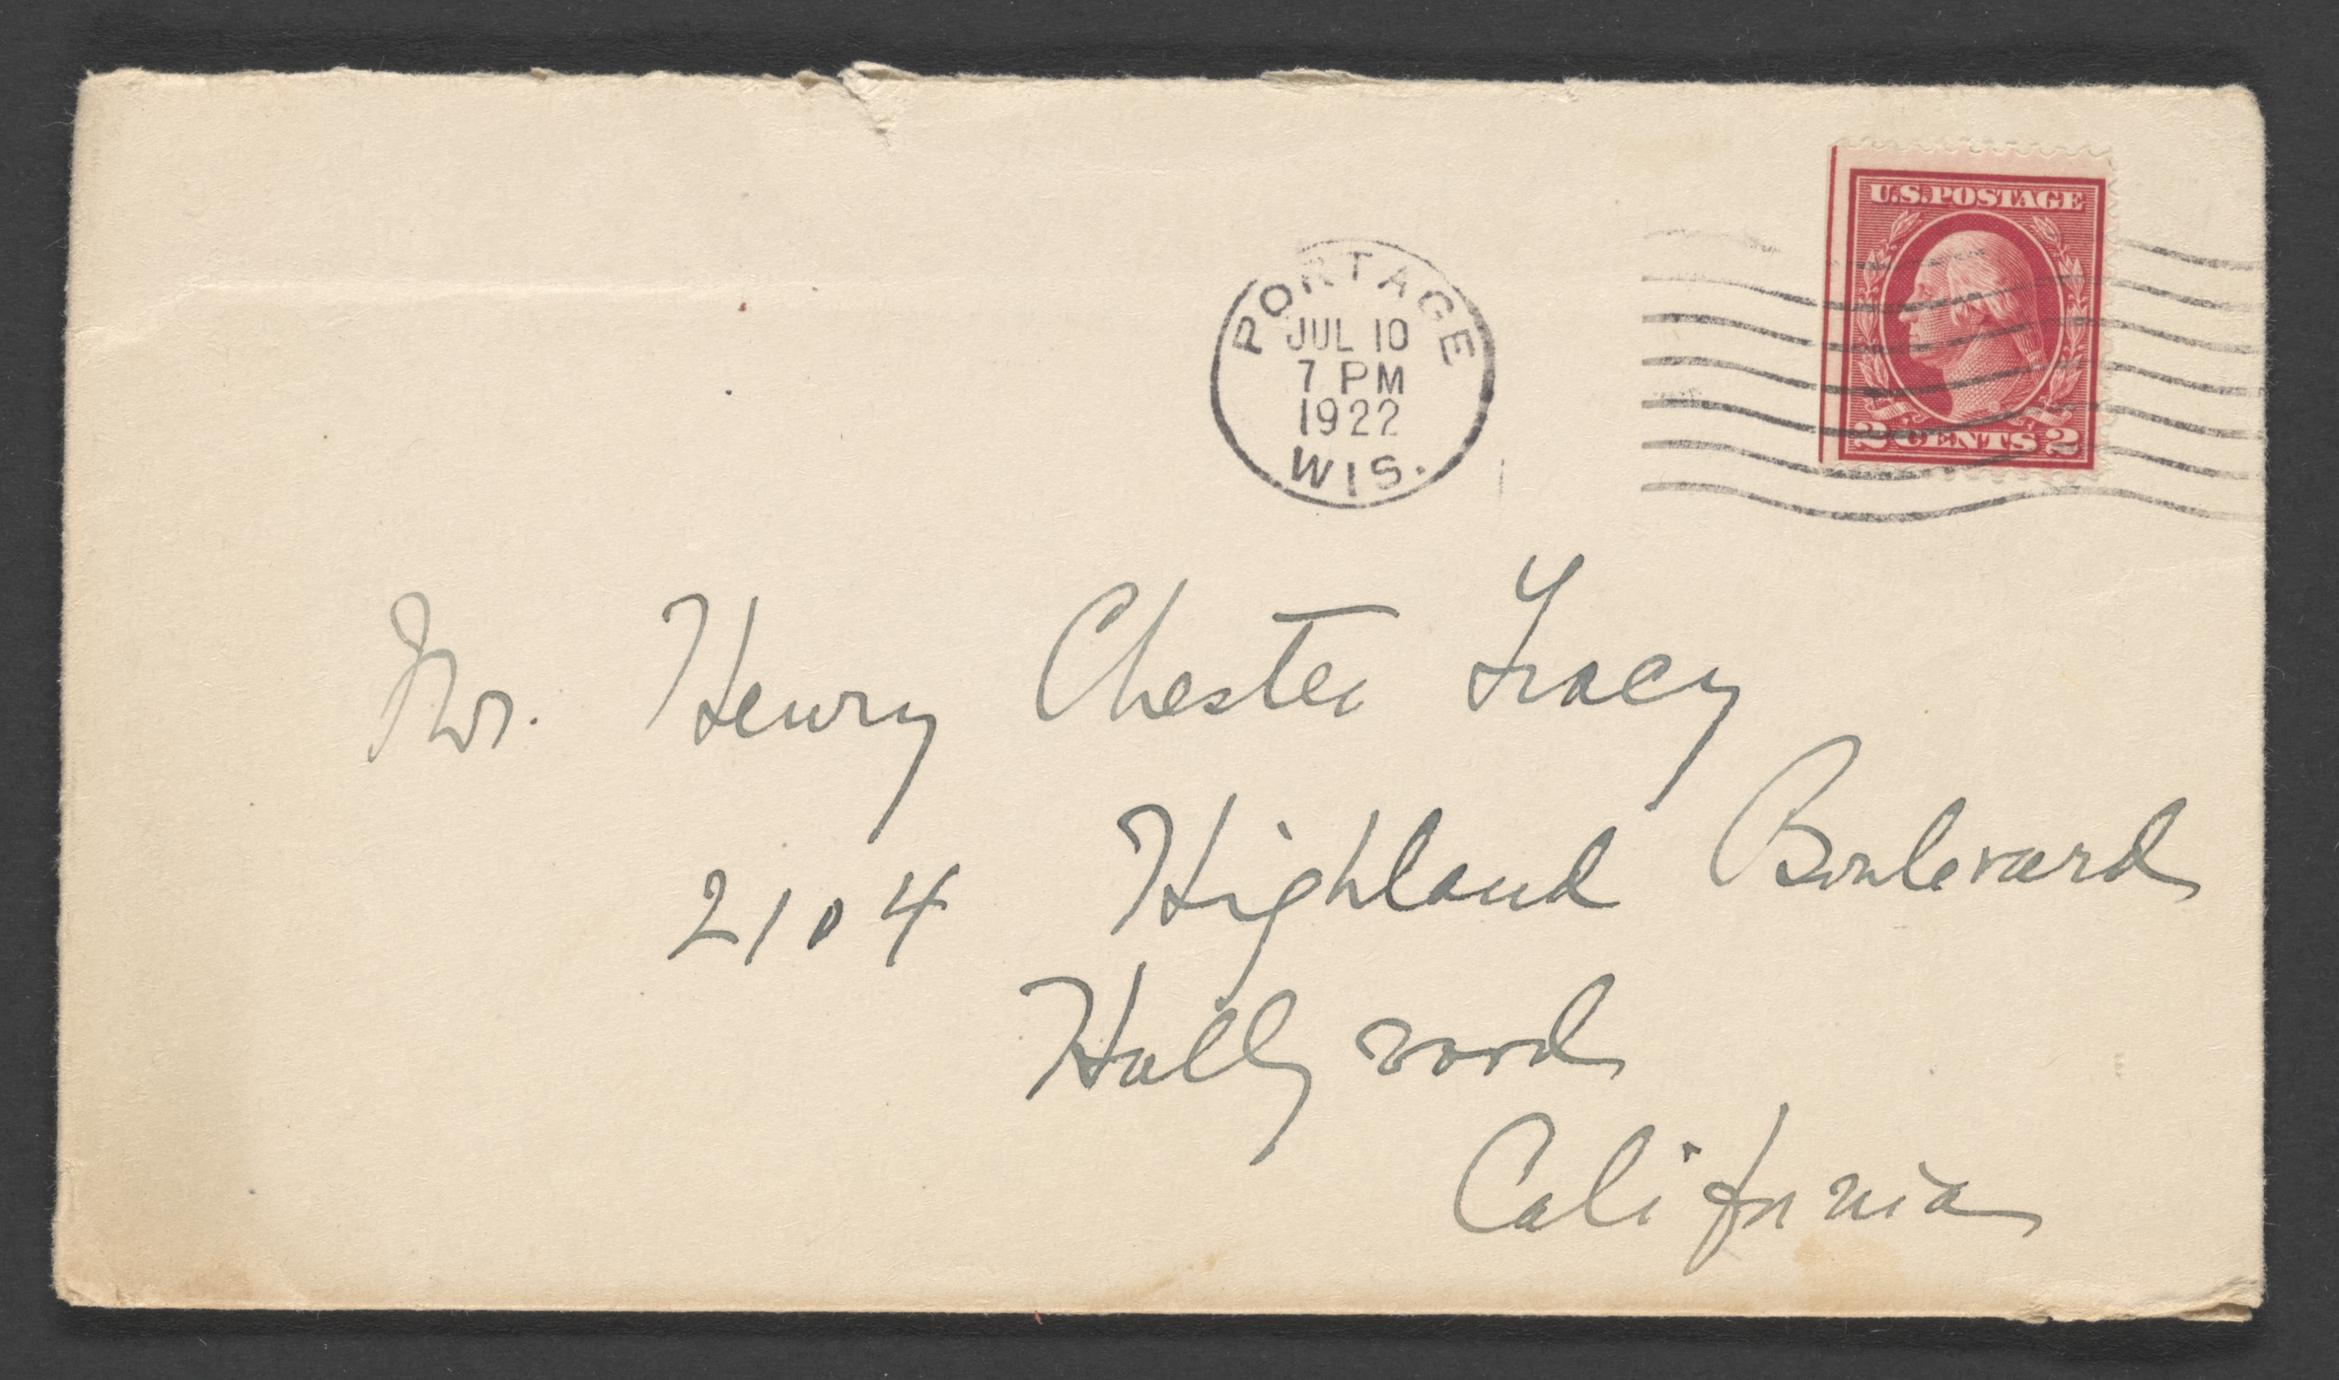 PORTAGE
JUL 10
7 PM
1922
WIS.
U.S. POSTAGE
2 CENTS 2
Mr. Henry Chester Tracy
2104 Highland Boulevard
Hollywood
California